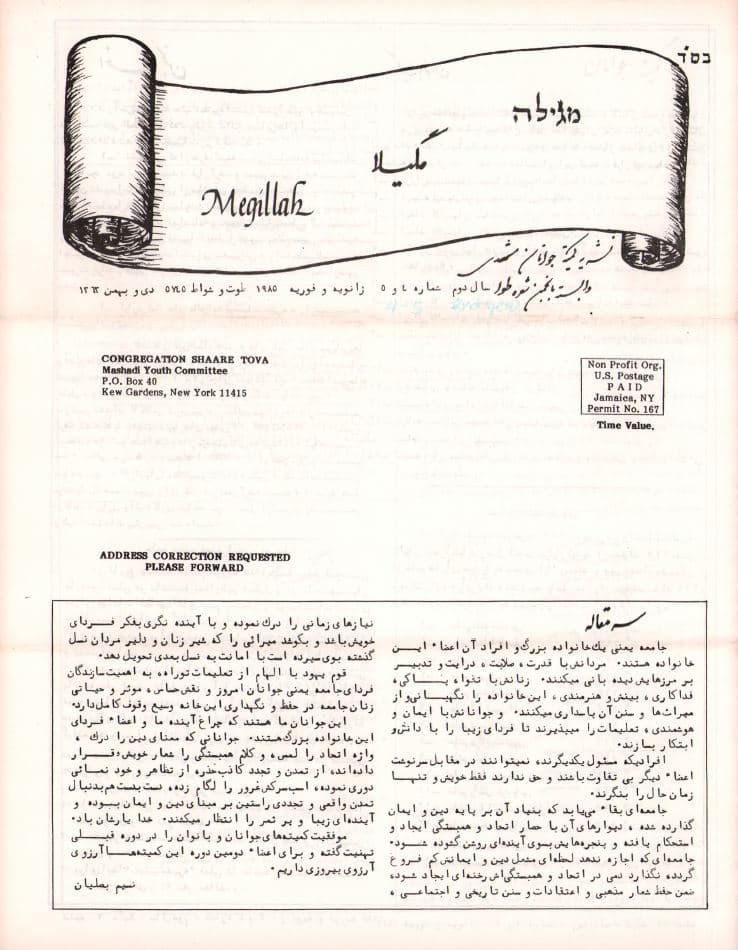 בס"ד
מגילה
مگیلا
Megillah
نشریه کمیته جوانان مشهدی
وابسته بانجمن شعره طوا سال دوم شماره ٤ و ٥ ژانویه و فوریه ١٩٨٥ طوت و شواط ٥٧٤٥ دی و بهمن ١٣٦٣
4 5
CONGREGATION SHAARE TOVA
Mashadi Youth Committee
P.O. Box 40
Kew Gardens, New York 11415
Non Profit Org.
U.S. Postage
PAID
Jamaica, NY
Permit No. 167
Time Value.
ADDRESS CORRECTION REQUESTED
PLEASE FORWARD
سرمقاله
جامعه یعنی یك خانواده بزرگ و افراد آن اعضاء ایـــن
خانواده هستند. مردانش با قدرت، صلابت، درایت و تدبیــر
بر مرزهایش دیده بانی میکنند. زنانش با تقوا، پــاکی،
فداکاری، بینش و هنرمندی، این خانواده را نگهبــانی و از
میراث ها و سنن آن پاسداری میکنند. و جوانانش با ایمان و
هوشمندی، تعلیمات را میپذیرند تا فردای زیبا را با دانش و
ابتکار بسازند.
افرادیکه مسئول یکدیگرند، نمیتوانند در مقابل سرنوشت
اعضاء دیگر بی تفاوت باشند و حق ندارند فقط خویش و تنهــا
زمان حال را بنگرند.
جامعه‌ای بقاء می‌یابد که بنیاد آن بر پایه دین و ایمان
گذارده شده، دیوارهای آن با حصار اتحاد و همبستگی ایجاد و
استحکام یافته و پنجره‌هایش بسوی آینده‌ای روشن گشوده شــود.
جامعه‌ای که اجازه ندهد لحظه‌ای مشعل دین و ایمانش کم فــروغ
گردد، نگذارد دمی در اتحاد و همبستگی‌اش رخنه‌ای ایجاد شود،
ضمن حفظ شعار مذهبی و اعتقادات و سنن تاریخی و اجتماعی،
نیازهای زمانی را درك نموده و با آینده نگری بفکر فــردای
خویش باشد و بکوشد میراثی را که شیر زنان و دلیر مردان نسل
گذشته بوی سپرده است با امانت به نسل بعدی تحویل دهد.
قوم یهود با الهام از تعلیمات توراه، به اهمیت سازندگان
فردای جامعه یعنی جوانان امروز و نقش حساس، موثر و حیــاتی
زنان جامعه در حفظ و نگهداری این خانه وسیع وقوف کامل دارد.
این جوانان ما هستند که چراغ آینده ما و اعضاء فــردای
این خانواده بزرگ هستند. جوانانی که معنای دین را درك،
واژه اتحاد را لمس، و کلام همبستگی را شعار خویش قــرار
داده‌اند، از تمدن و تجدد کاذب حذر، از تظاهر و خود نمــائی
دوری نموده، اسب سرکش غرور را لگام زده، دست بدست هم بدنبال
تمدن واقعی و تجددی راستین بر مبنای دین و ایمان بــوده و
آینده‌ای زیبا و پر ثمر را انتظار میکنند. خدا یارشان باد.
موفقیت کمیته‌های جوانان و بانوان را در دوره قبــلی
تهنیت گفته و برای اعضاء دومین دوره این کمیته‌هــا آرزوی
آرزوی پیروزی داریم.
نسیم بصلیان